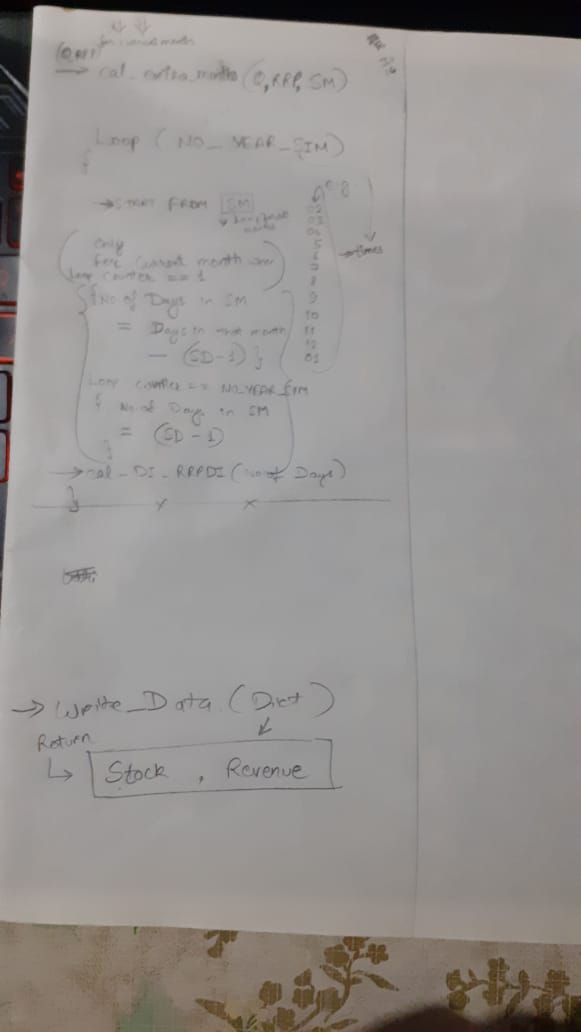 for current month
→ cal_extra_months (Q, RRP, SM)
Loop ( NO_YEAR_SIM )
{
→ START FROM SM
e.g.
02
03
04
5
6
7
8
9
10
11
12
01
→ times
Only
for current month when
loop counter == 1
{ No of Days in SM
= Days in that month
- (SD-1) }
Loop counter == NO_YEAR_SIM
{ No. of Days in SM
= (SD-1)
}
→ cal_DI_RRPDI (No of Days)
}
→ Write_Data (Dict)
Return
Stock , Revenue